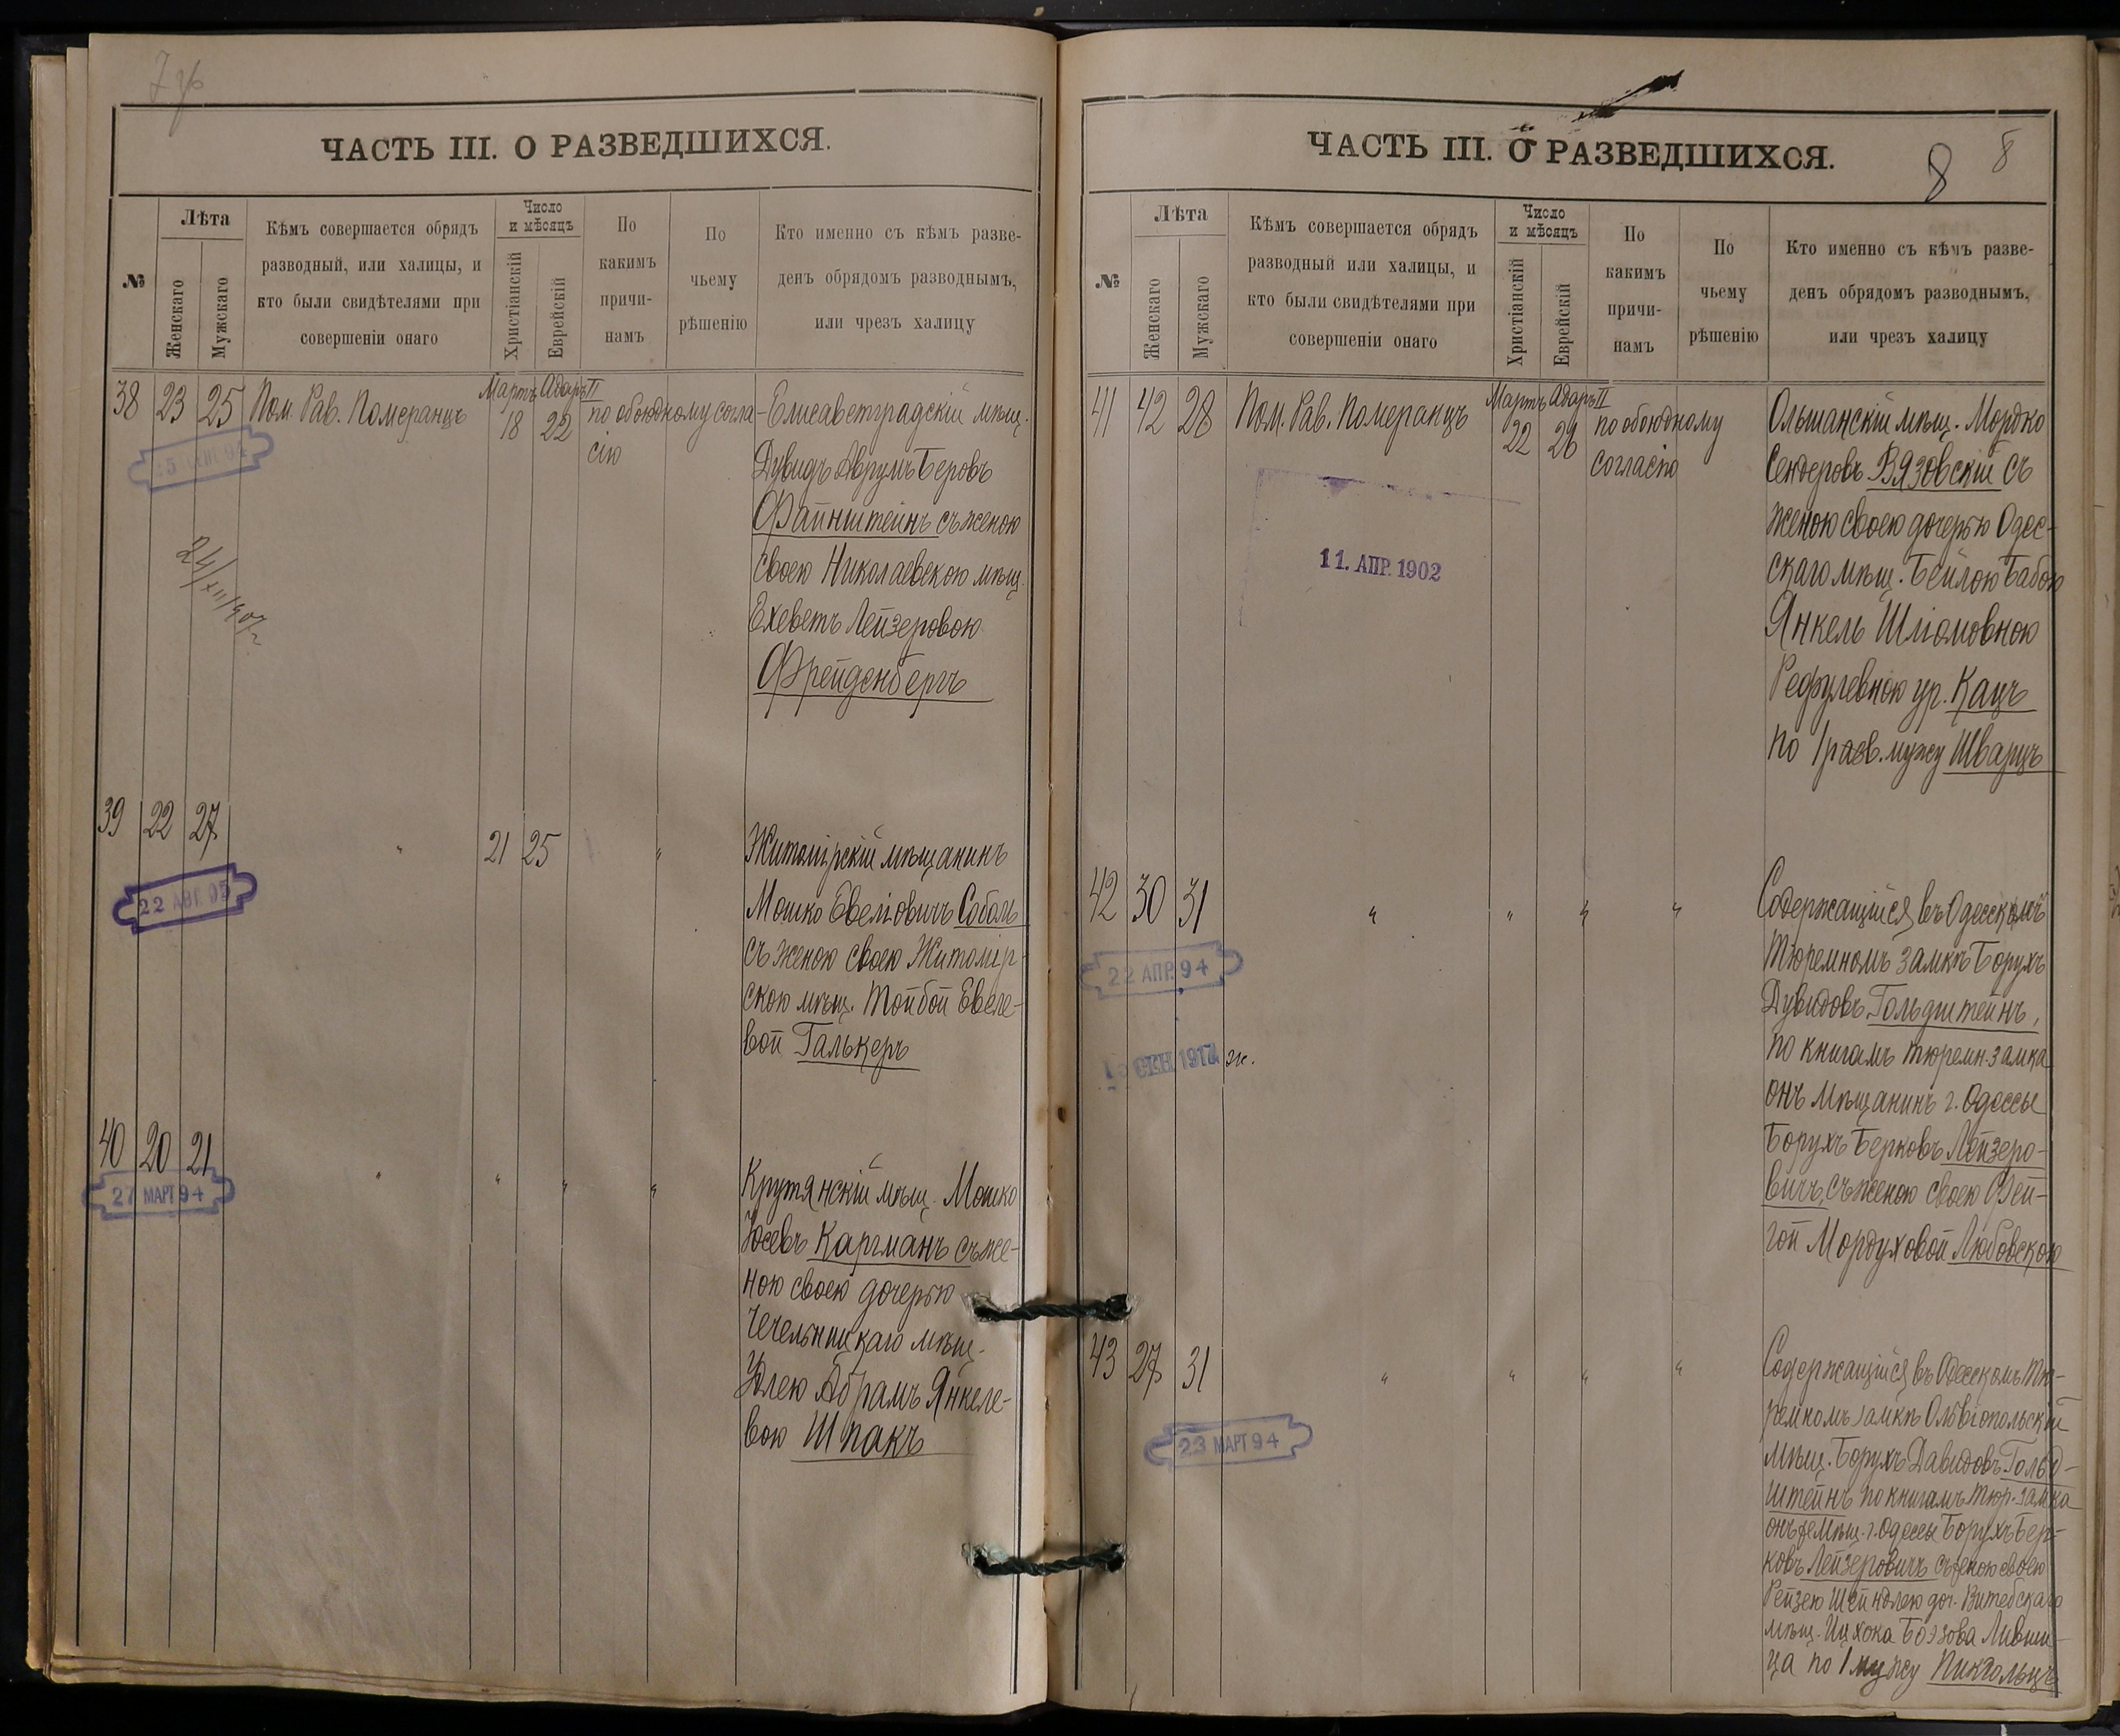 ЧАСТЬ III. О РАЗВЕДШИХСЯ.
№
Лѣта
Женскаго
Мужскаго
Кѣмъ совершается обрядъ
разводный, или халицы, и
кто были свидѣтелями при
совершеніи онаго
Число
и мѣсяцъ
Христіанскій
Еврейскій
По
какимъ
причи-
намъ
По
чьему
рѣшенію
Кто именно съ кѣмъ разве-
денъ обрядомъ разводнымъ,
или чрезъ халицу
38 23 25 Пом. Рав. Померанцъ
Мартъ Адаръ II
18 22
по обоюдному согла-
сію
Елисаветградскій мѣщ.
Дувидъ Аврумъ Беровъ
Файнштейнъ съ женою
своею Николаевскою мѣщ.
Ехеветъ Лейзеровою
Фрейденбергъ
24/XII 907 г
39 22 27 " 21 25 "
22 АВГ. 95
Житомірскій мѣщанинъ
Мошко Евеліовичъ Соболь
съ женою своею Житомір-
скою мѣщ. Тойбой Евеле-
вой Галькеръ
40 20 21 " " " "
27 МАРТ 94
Крутянскій мѣщ. Мошко
Іосевъ Каргманъ съ же-
ною своею дочерью
Чечельницкаго мѣщ.
Удлею Абрамъ Янкеле-
вою Шпакъ
ЧАСТЬ III. О РАЗВЕДШИХСЯ.
8 8
№
Лѣта
Женскаго
Мужскаго
Кѣмъ совершается обрядъ
разводный или халицы, и
кто были свидѣтелями при
совершеніи онаго
Число
и мѣсяцъ
Христіанскій
Еврейскій
По
какимъ
причи-
намъ
По
чьему
рѣшенію
Кто именно съ кѣмъ разве-
денъ обрядомъ разводнымъ,
или чрезъ халицу
41 42 28 Пом. Рав. Померанцъ
Мартъ Адаръ II
22 26
по обоюдному
согласію
11. АПР. 1902
Ольшанскій мѣщ. Мордко
Сендеровъ Вязовскій съ
женою своею дочерью Одес-
скаго мѣщ. Бейлою Бабою
Янкель Шліомовною
Рефулевною ур. Кацъ
по 1 разв. мужу Шварцъ
42 30 31 " " " "
22 АПР. 94
СЕН 1917 эк.
Содержащійся въ Одесскомъ
тюремномъ замкѣ Борухъ
Дувидовъ Гольдштейнъ,
по книгамъ тюремн. замка
онъ мѣщанинъ г. Одессы
Борухъ Берковъ Лейзеро-
вичъ, съ женою своею Фей-
гой Мордуховой Любовскою
43 27 31 " " " "
23 МАРТ 94
Содержащійся въ Одесскомъ тю-
ремномъ замкѣ Ольвіопольскій
мѣщ. Борухъ Давидовъ Гольд-
штейнъ по книгамъ тюр. замка
онъ же мѣщ. г. Одессы Борухъ Бер-
ковъ Лейзеровичъ съ женою своею
Рейзею Шейндлею доч. Витебскаго
мѣщ. Ицхока Боэзова Ливши-
ца по 1 мужу Пикгольцъ